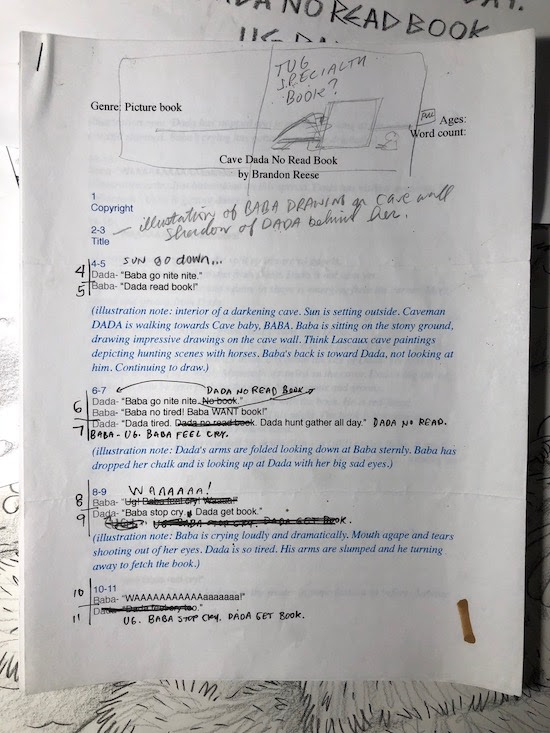 DAY.
DA NO READ BOOK
TUG
SPECIALTY
BOOK?
Genre: Picture book
Ages:
Word count:
Cave Dada No Read Book
by Brandon Reese
1
Copyright
2-3
Title
illustration of BABA DRAWING on cave wall
Shadow of DADA behind her.
4-5 SUN GO DOWN...
4 Dada- "Baba go nite nite."
5 Baba- "Dada read book!"
(illustration note: interior of a darkening cave. Sun is setting outside. Caveman
DADA is walking towards Cave baby, BABA. Baba is sitting on the stony ground,
drawing impressive drawings on the cave wall. Think Lascaux cave paintings
depicting hunting scenes with horses. Baba's back is toward Dada, not looking at
him. Continuing to draw.)
6-7 DADA NO READ BOOK
Dada- "Baba go nite nite. No book."
6 Baba- "Baba no tired! Baba WANT book!"
7 Dada- "Dada tired. Dada no read book. Dada hunt gather all day." DADA NO READ.
BABA- UG. BABA FEEL CRY.
(illustration note: Dada's arms are folded looking down at Baba sternly. Baba has
dropped her chalk and is looking up at Dada with her big sad eyes.)
8-9 WAAAAAA!
8 Baba- "Ug! Baba feel cry! Waaaa!"
9 Dada- "Baba stop cry. Dada get book."
UG BABA STOP CRY. DADA GET BOOK.
(illustration note: Baba is crying loudly and dramatically. Mouth agape and tears
shooting out of her eyes. Dada is so tired. His arms are slumped and he turning
away to fetch the book.)
10 10-11
Baba- "WAAAAAAAAAAAaaaaaaa!"
Dada- "Dada feel cry too."
11 UG. BABA STOP CRY. DADA GET BOOK.